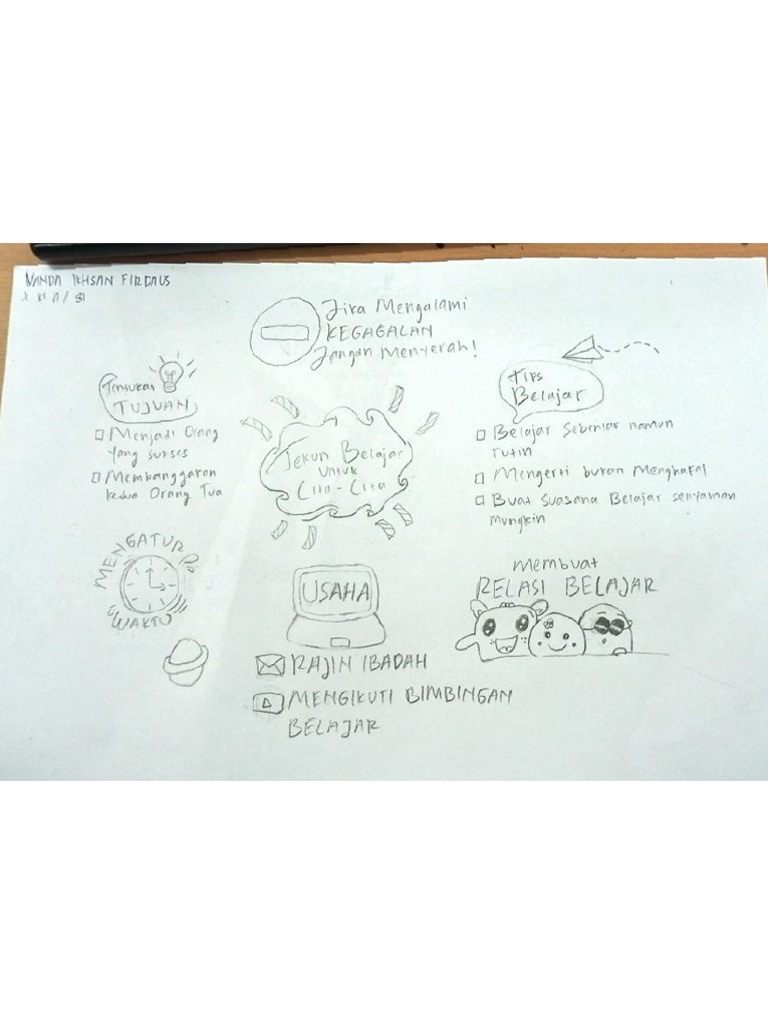 NANDA IKHSAN FIRDAUS
Jika Mengalami
KEGAGALAN
Jangan Menyerah!
Tentukan
TUJUAN
Menjadi Orang
yang sukses
Membanggakan
kedua Orang Tua
Tekun Belajar
untuk
Cita-Cita
Tips
Belajar
Belajar Sebentar namun
rutin
Mengerti bukan Menghafal
Buat Suasana Belajar senyaman
mungkin
MENGATUR
WAKTU
USAHA
RAJIN IBADAH
MENGIKUTI BIMBINGAN
BELAJAR
Membuat
RELASI BELAJAR